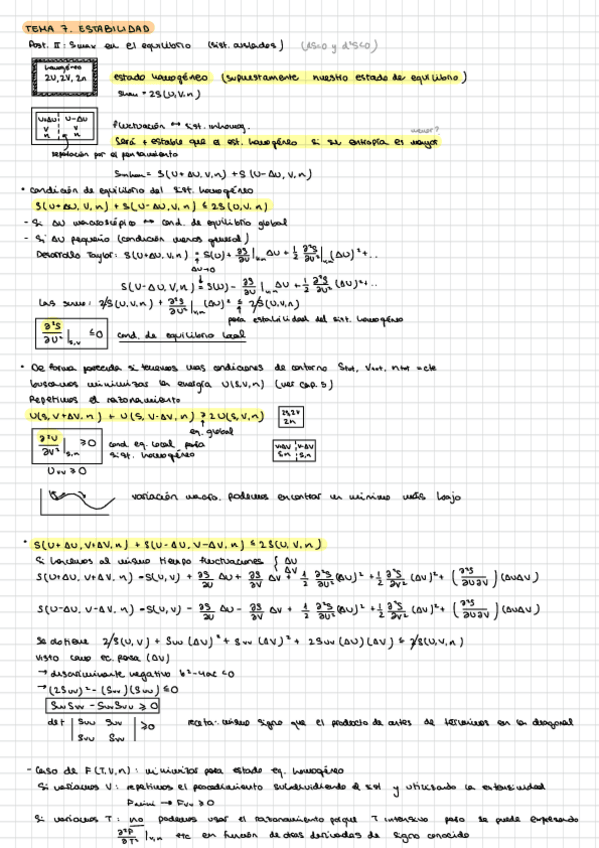 TEMA 7. ESTABILIDAD
Post. II: Smax en el equilibrio (sist. aislados) (dS=0 y d²S<0)
homogéneo
2U, 2V, 2n
estado homogéneo (supuestamente nuestro estado de equilibrio)
Shom = 2S(U,V,n)
U+ΔU U-ΔU
V V
n n
Fluctuación ↔ sist. inhomog.
menor?
Será + estable que el est. homogéneo si su entropía es mayor
separación por el pensamiento
Sinhom = S(U+ΔU,V,n) + S(U-ΔU,V,n)
• Condición de equilibrio del sist. homogéneo
S(U+ΔU,V,n) + S(U-ΔU,V,n) ≤ 2S(U,V,n)
- Si ΔU macroscópico ↔ cond. de equilibrio global
- Si ΔU pequeño (condición menos general)
Desarrollo Taylor: S(U+ΔU,V,n) = S(U) + ∂S/∂U|v,n ΔU + 1/2 ∂²S/∂U²|v,n (ΔU)² + ..
ΔU→0
S(U-ΔU,V,n) = S(U) - ∂S/∂U|v,n ΔU + 1/2 ∂²S/∂U² (ΔU)² + ..
Las sumo: 2S(U,V,n) + ∂²S/∂U²|v,n (ΔU)² ≤ 2S(U,V,n)
para estabilidad del sist. homogéneo
∂²S/∂U²|s,v ≤ 0 cond. de equilibrio local
• De forma parecida si tenemos unas condiciones de contorno Stot, Vtot, ntot = cte
buscamos minimizar la energía U(S,V,n) (ver cap. 5)
Repetimos el razonamiento
U(S,V+ΔV,n) + U(S,V-ΔV,n) ≥ 2U(S,V,n)
eq. global
2S,2V
2n
∂²U/∂V²|s,n ≥ 0 cond eq. local para
sist. homogéneo
V+ΔV V-ΔV
S,n S,n
Uvv ≥ 0
variación macro. podemos encontrar un mínimo más bajo
• S(U+ΔU,V+ΔV,n) + S(U-ΔU,V-ΔV,n) ≤ 2S(U,V,n)
Si hacemos al mismo tiempo fluctuaciones { ΔU
ΔV
S(U+ΔU,V+ΔV,n) = S(U,V) + ∂S/∂U ΔU + ∂S/∂V ΔV + 1/2 ∂²S/∂U² (ΔU)² + 1/2 ∂²S/∂V² (ΔV)² + (∂²S/∂U∂V) (ΔUΔV)
S(U-ΔU,V-ΔV,n) = S(U,V) - ∂S/∂U ΔU - ∂S/∂V ΔV + 1/2 ∂²S/∂U² (ΔU)² + 1/2 ∂²S/∂V² (ΔV)² + (∂²S/∂U∂V) (ΔUΔV)
Se obtiene 2S(U,V) + Suu (ΔU)² + Svv (ΔV)² + 2Suv (ΔU)(ΔV) ≤ 2S(U,V,n)
visto como ec. para (ΔU)
→ discriminante negativo b²-4ac ≤0
→ (2Suv)² - (Svv)(Suu) ≤0
Suu Svv - Suv Suv ≥ 0
det | Suu Suv
Svu Svv | ≥0
receta: mismo signo que el producto de antes de términos en la diagonal
- Caso de F(T,V,n): minimizar para estado eq. homogéneo
Si variamos V: repetimos el procedimiento subdividiendo el sist y utilizando la extensividad
Fmini → Fvv ≥0
Si variamos T: no podemos usar el razonamiento porque T intensivo pero se puede expresando
∂²F/∂T²|v,n etc en función de otras derivadas de signo conocido